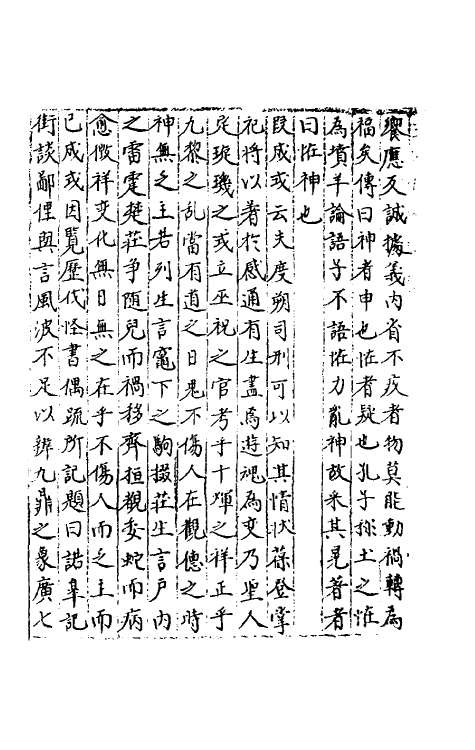 饗應及誠搗義內省不疚者物莫能動禍轉為
福矣傳曰神者申也怪者疑也孔子辨土之怪
為墳羊論語子不語怪力亂神故采其晃著者
曰怪神也
段成式云夫度朔司刑可以知其情狀葆登掌
祀將以著扵感通有生盡焉遊魂為變乃聖人
定琁璣之或立巫祝之官考乎十煇之祥正乎
九黎之亂當有道之日鬼不傷人在觀德之時
神無乏主若列生言竃下之駒掇莊生言戶內
之雷霆楚莊争随兕而禍移齊桓覩委蛇而病
愈徵祥变化無日無之在乎不傷人而乏主而
已成或因覽歷代怪書偶疏所記題曰諾皐記
街談鄙俚與言風波不足以辨九鼎之象廣七